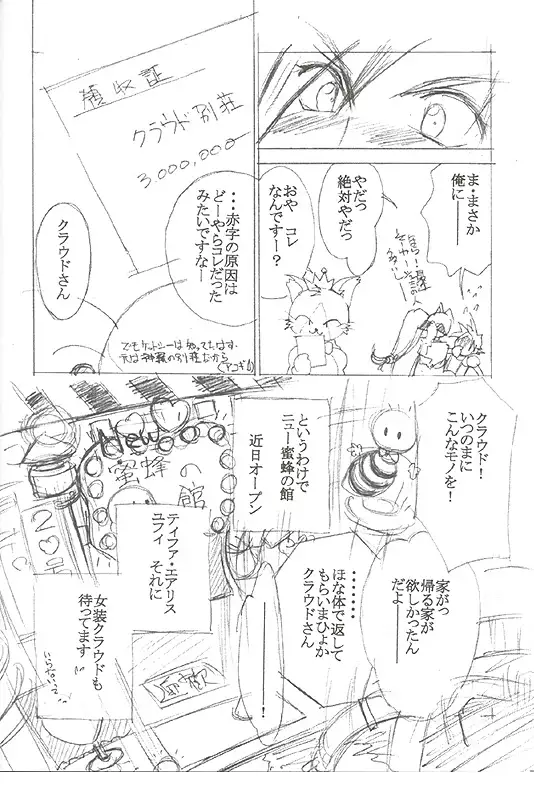 ま・まさか
俺に――
やだっ
絶対やだっ
おや　コレ
なんですー？
領収証
クラウド別荘
3,000,000-
・・・赤字の原因は
どーやらコレだった
みたいですなー
クラウドさん
でもケットシーは知ってたはず
元は神羅の別荘だから
クラウド！
いつのまに
こんなモノを！
家がっ
帰る家が
欲しかったん
だよ――
・・・・・・・
ほな体で返して
もらいまひょか
クラウドさん
――！
というわけで
ニュー蜜蜂の館
近日オープン
New
蜜蜂の館
ティファ・エアリス
ユフィ
それに
女装クラウドも
待ってます
いらないって